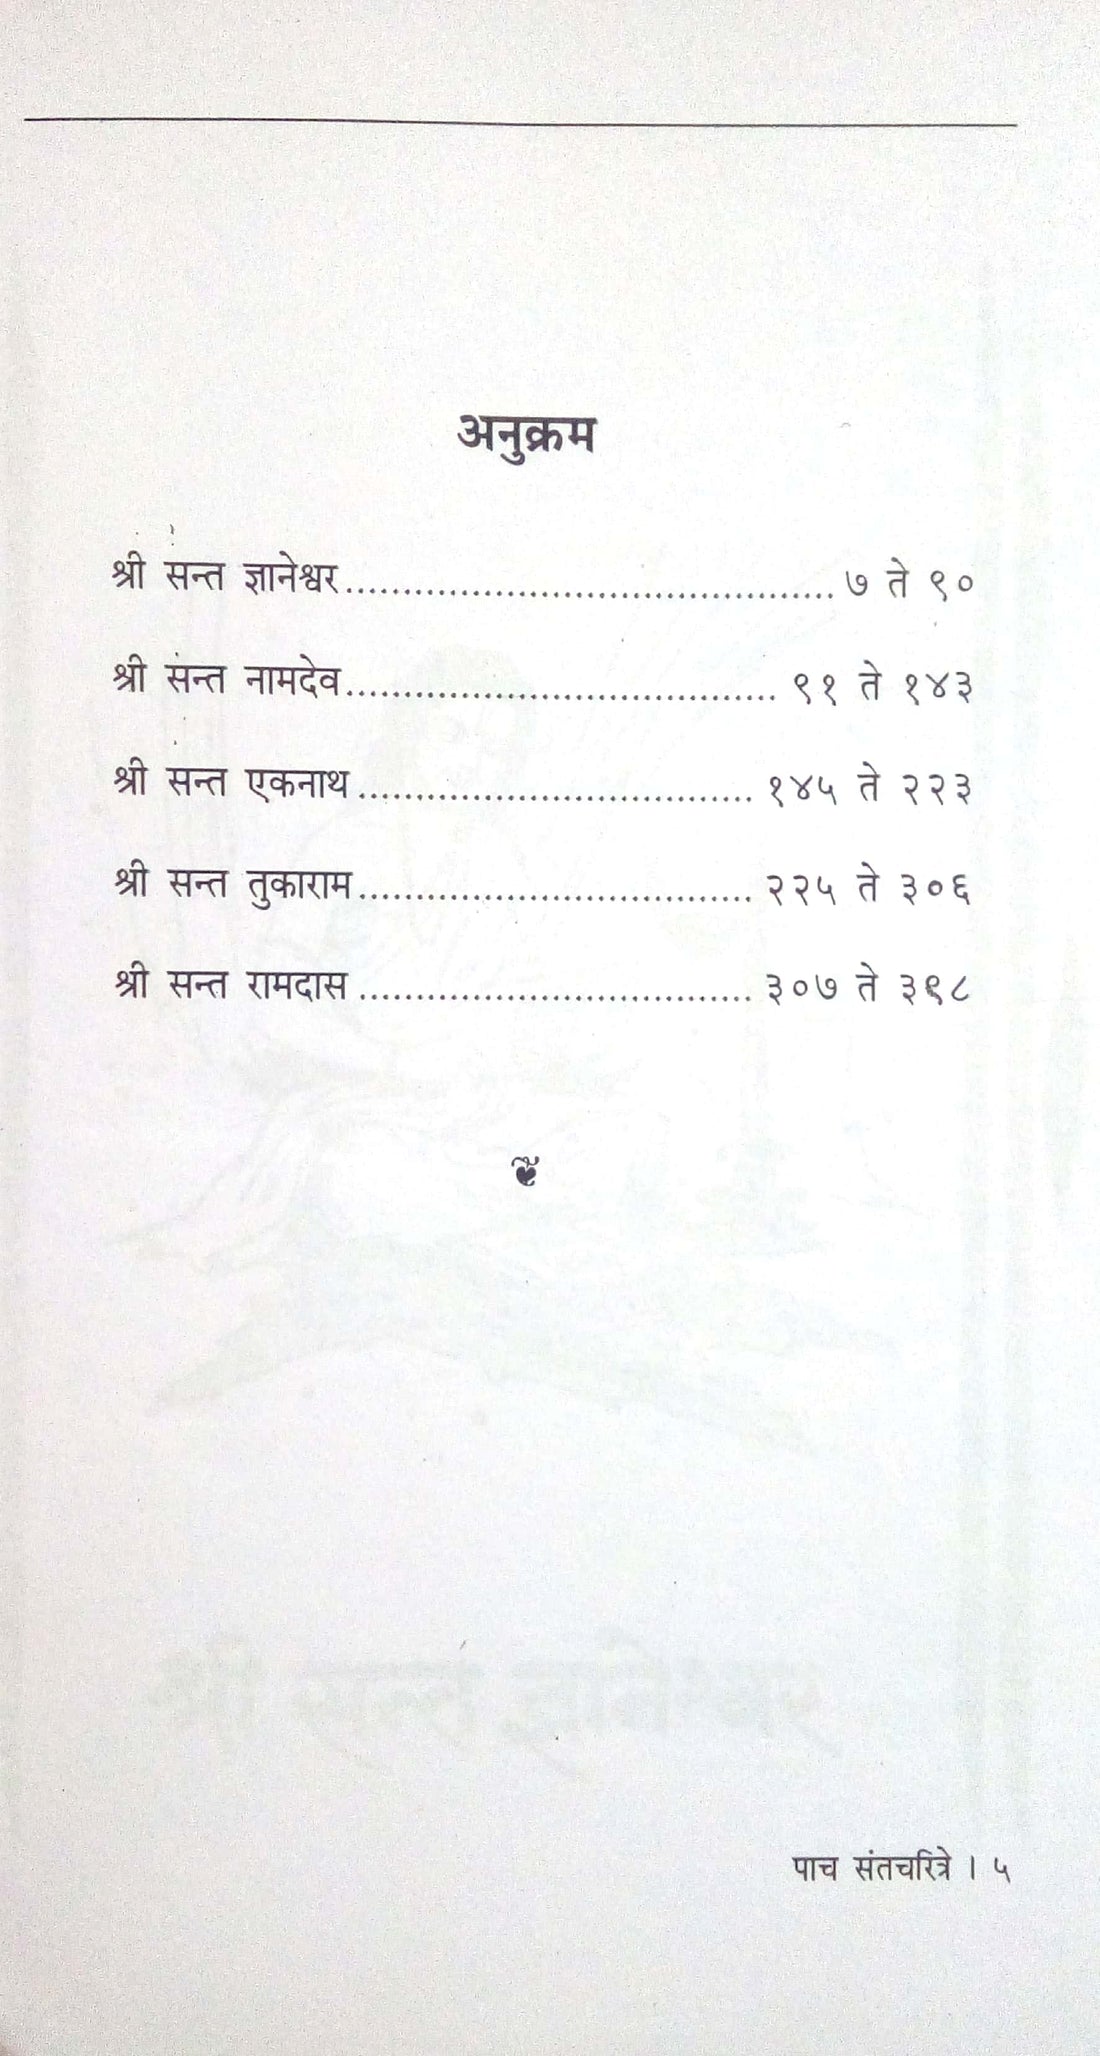 अनुक्रम
श्री सन्त ज्ञानेश्वर.......................................... ७ ते ९०
श्री सन्त नामदेव..................................... ९१ ते १४३
श्री सन्त एकनाथ.................................. १४५ ते २२३
श्री सन्त तुकाराम.................................. २२५ ते ३०६
श्री सन्त रामदास.................................. ३०७ ते ३९८
श्री सन्त ज्ञानेश्वर
पाच संतचरित्रे । ५